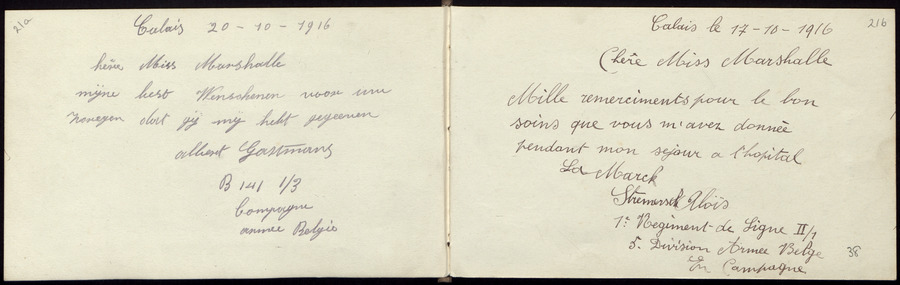 21a
Calais 20-10-1916
hêre Miss Marshalle
mijne best Wenschenen voor uw
zorregen dat gij mij hebt gegeeven
albert Gastmans
B 141 1/3
Compagne
armée Belgie
21b
Calais le 17-10-1916
Chêre Miss Marshalle
Mille remerciments pour le bon
soins que vous m'avez donnée
pendant mon sejour a l'hopital
La Marck
Aloïs
1r Regiment de Ligne II/1
5. Division Armee Belge
En Campagne
38